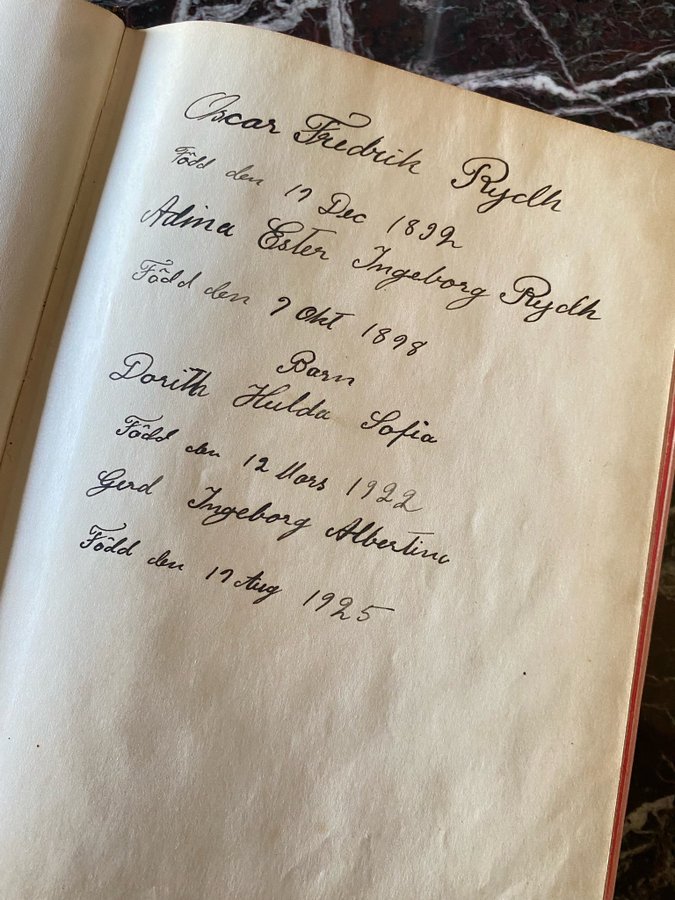 Oscar Fredrik Rydh
Född den 17 Dec 1892
Adina Ester Ingeborg Rydh
Född den 7 Okt 1898
Barn
Dorith Hulda Sofia
Född den 12 Mars 1922
Gerd Ingeborg Albertina
Född den 17 Aug 1925